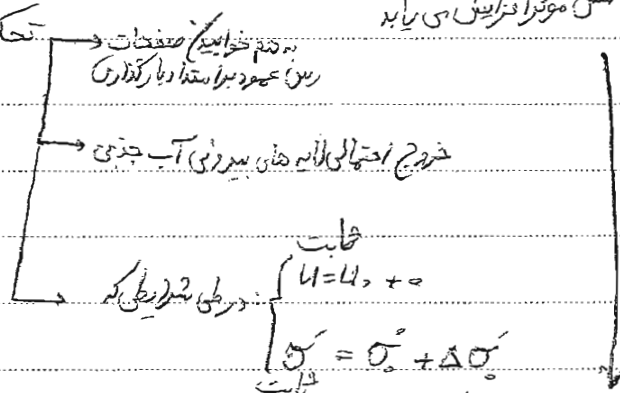 موثر افزایش می یابد
به هم خوابیدن صفحات
رس عمود بر امتداد بارگذاری
خروج احتمالی لایه های بیرونی آب جذبی
ثابت
در طی شرایطی که
u = u₀ + 0
σ' = σ'₀ + Δσ'₀
ثابت